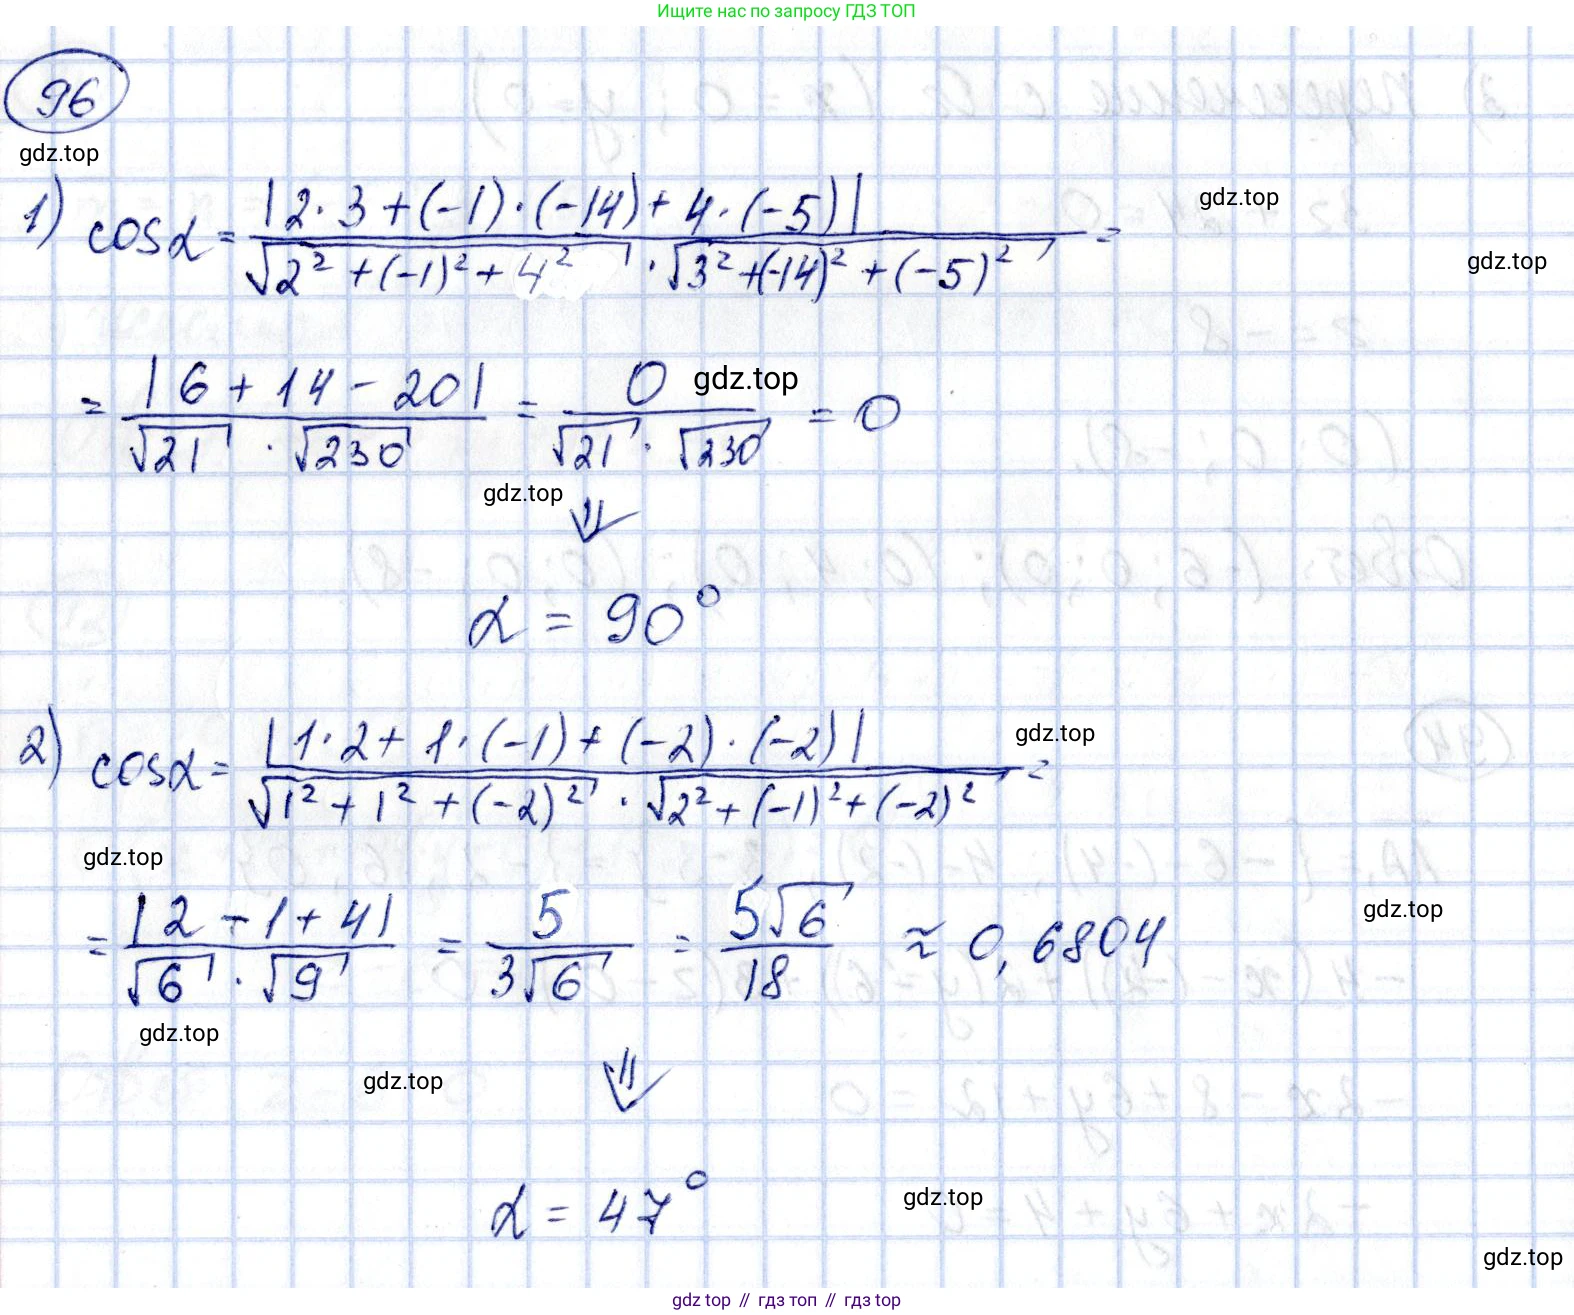 Ищите нас по запросу ГДЗ ТОП
96
gdz.top
1) cosα = |2·3+(-1)·(-14)+4·(-5)| / √(2²+(-1)²+4²) · √(3²+(-14)²+(-5)²) =
gdz.top
gdz.top
= |6+14-20| / √21 · √230 = 0 / √21 · √230 = 0
gdz.top
gdz.top
⇓
α = 90°
2) cosα = |1·2+1·(-1)+(-2)·(-2)| / √(1²+1²+(-2)²) · √(2²+(-1)²+(-2)²) =
gdz.top
gdz.top
= |2-1+4| / √6 · √9 = 5 / 3√6 = 5√6 / 18 ≈ 0,6804
gdz.top
gdz.top
gdz.top
⇓
α = 47°
gdz.top
gdz.top
gdz top // гдз топ // гдз top